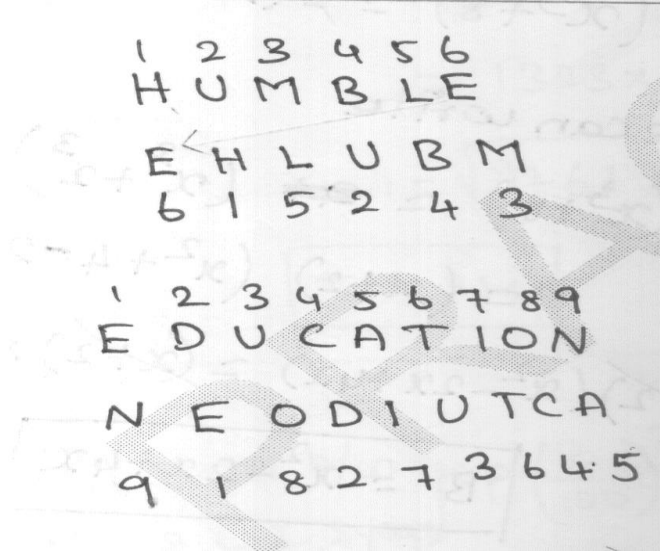 1 2 3 4 5 6
H U M B L E
E H L U B M
6 1 5 2 4 3
1 2 3 4 5 6 7 8 9
E D U C A T I O N
N E O D I U T C A
9 1 8 2 7 3 6 4 5